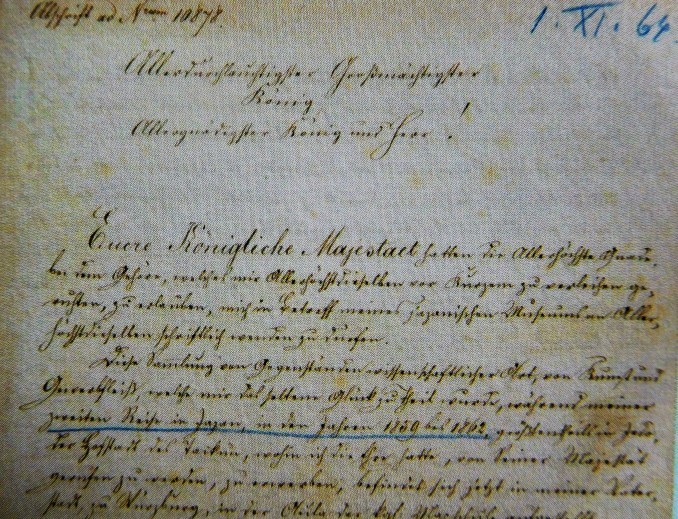 Abschrift ad Nrum 10878.
1. XI. 64.
Allerdurchlauchtigster Großmächtigster
König
Allergnädigster König und Herr!
Euere Königliche Majestaet hatten die Allerhöchste Gnade,
bei dem Gehöre, welches mir Allerhöchstdieselben vor Kurzem zu verleihen ge-
ruhten, zu erlauben, mich in Betreff meines Japanischen Museums an Aller-
höchstdieselben schriftlich wenden zu dürfen.
Diese Sammlung von Gegenständen wissenschaftlicher Art, von Kunst und
Gewerbfleiß, welche mir das seltene Glück zu Theil wurde, während meiner
zweiten Reise in Japan, in den Jahren 1859 bis 1862, größtentheils in Jedo,
der Hofstadt des Taikun, wohin ich die Ehre hatte, von Seiner Majestät
gerufen zu werden, zu erwerben, befindet sich jetzt in meiner Vater-
stadt, zu Würzburg, in der Aula der kgl.